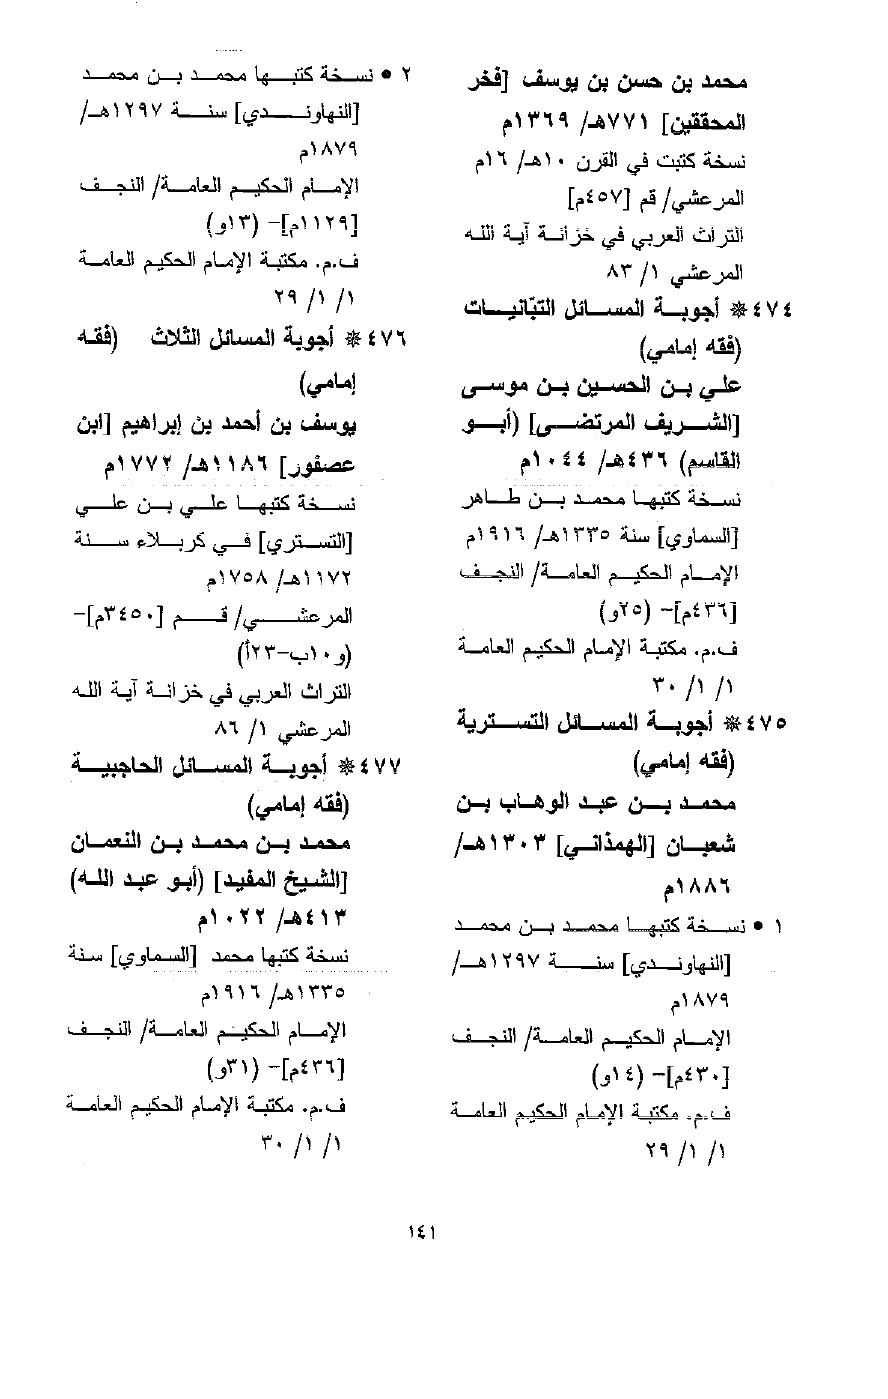 محمد بن حسن بن يوسف [فخر
المحققين] ٧٧١هـ/ ١٣٦٩م
نسخة كتبت في القرن ١٠هـ/ ١٦م
المرعشي/ قم [٤٥٧م]
التراث العربي في خزانة آية الله
المرعشي ١/ ٨٣
٤٧٤ ※ أجوبة المسائل التبّانيات
(فقه إمامي)
علي بن الحسين بن موسى
[الشريف المرتضى] (أبو
القاسم) ٤٣٦هـ/ ١٠٤٤م
نسخة كتبها محمد بن طاهر
[السماوي] سنة ١٣٣٥هـ/ ١٩١٦م
الإمام الحكيم العامة/ النجف
[٤٣٦م]– (٢٥و)
ف.م. مكتبة الإمام الحكيم العامة
١/ ١/ ٣٠
٤٧٥ ※ أجوبة المسائل التسترية
(فقه إمامي)
محمد بن عبد الوهاب بن
شعبان [الهمذاني] ١٣٠٣هـ/
١٨٨٦م
١ • نسخة كتبها محمد بن محمد
[النهاوندي] سنة ١٢٩٧هـ/
١٨٧٩م
الإمام الحكيم العامة/ النجف
[٤٣٠م]– (١٤و)
ف.م. مكتبة الإمام الحكيم العامة
١/ ١/ ٢٩
٢ • نسخة كتبها محمد بن محمد
[النهاوندي] سنة ١٢٩٧هـ/
١٨٧٩م
الإمام الحكيم العامة/ النجف
[١١٢٩م]– (١٣و)
ف.م. مكتبة الإمام الحكيم العامة
١/ ١/ ٢٩
٤٧٦ ※ أجوبة المسائل الثلاث (فقه
إمامي)
يوسف بن أحمد بن إبراهيم [ابن
عصفور] ١١٨٦هـ/ ١٧٧٢م
نسخة كتبها علي بن علي
[التستري] في كربلاء سنة
١١٧٢هـ/ ١٧٥٨م
المرعشي/ قم [٣٤٥٠م]–
(و١٠ب–٢٣أ)
التراث العربي في خزانة آية الله
المرعشي ١/ ٨٦
٤٧٧ ※ أجوبة المسائل الحاجبية
(فقه إمامي)
محمد بن محمد بن النعمان
[الشيخ المفيد] (أبو عبد الله)
٤١٣هـ/ ١٠٢٢م
نسخة كتبها محمد [السماوي] سنة
١٣٣٥هـ/ ١٩١٦م
الإمام الحكيم العامة/ النجف
[٤٣٦م]– (٣١و)
ف.م. مكتبة الإمام الحكيم العامة
١/ ١/ ٣٠
١٤١